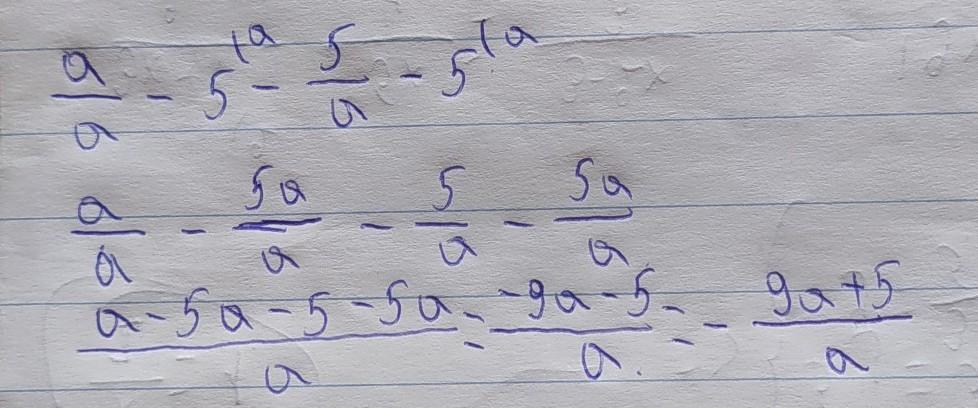 a/a - 5^(a - 5/a - 5^(a
a/a - 5a/a - 5/a - 5a/a
(a-5a-5-5a)/a = (-9a-5)/a = -(9a+5)/a